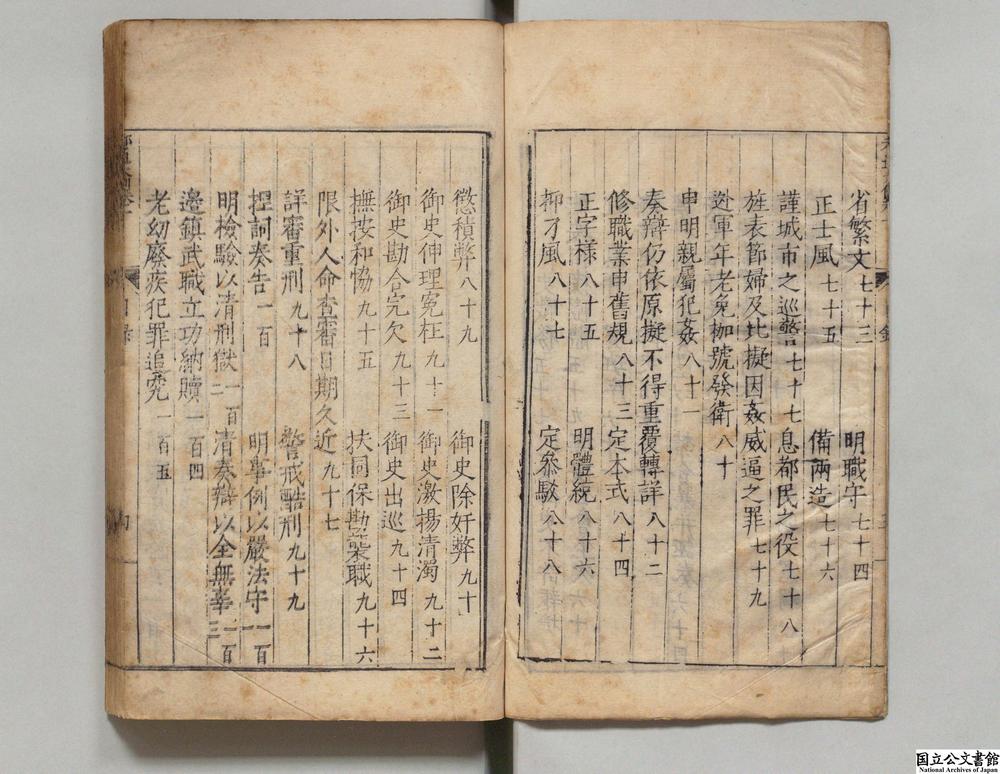 省繁文七十三　明職守七十四
正士風七十五　備兩造七十六
謹城市之巡警七十七　息都民之役七十八
旌表節婦及比擬因姦威逼之罪七十九
逃軍年老免枷號發衛八十
申明親屬犯姦八十一
奏辯仍依原擬不得重覆轉詳八十二
修職業申舊規八十三　定本式八十四
正字樣八十五　明體統八十六
抑刁風八十七　定參駁八十八
懲積弊八十九　御史除奸弊九十
御史伸理冤枉九十一　御史激揚清濁九十二
御史勘合完欠九十三　御史出巡九十四
撫按和恊九十五　扶同保勘襲職九十六
限外人命查審日期久近九十七
詳審重刑九十八　警戒酷刑九十九
捏詞奏告一百　明事例以嚴法守一百一
明檢驗以清刑獄一百二　清奏辯以全無辜一百三
邊鎮武職立功納贖一百四
老幼廢疾犯罪追究一百五
目錄
国立公文書館
National Archives of Japan